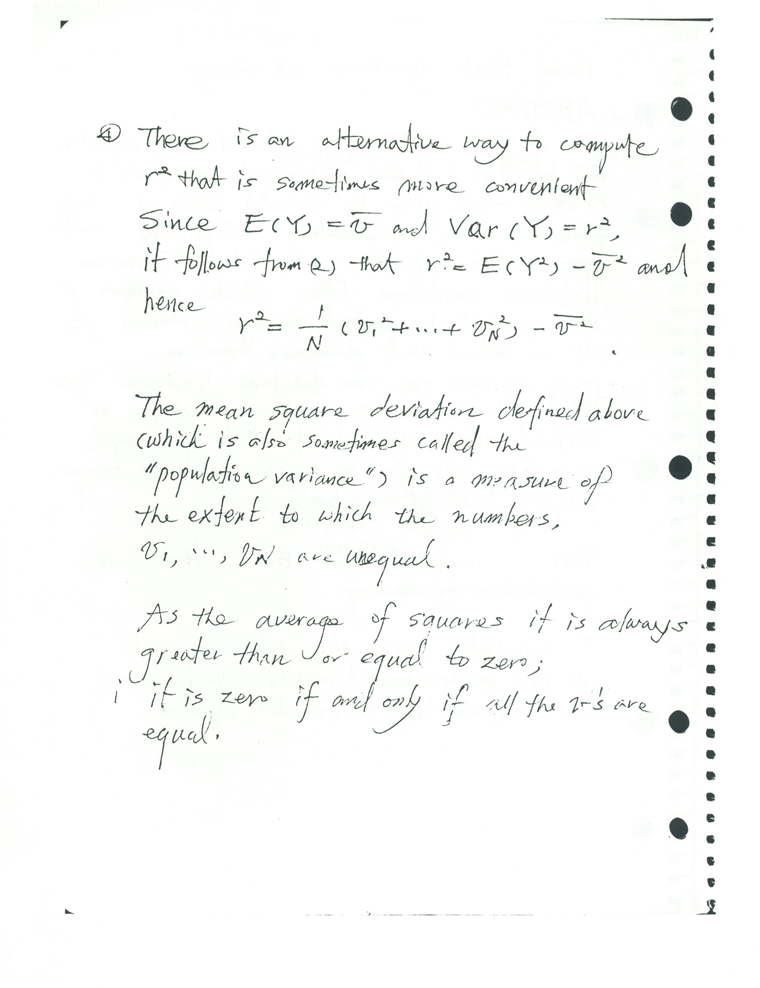 ④ There is an alternative way to compute
r² that is sometimes more convenient
Since E(Y) = v̅ and Var (Y) = r²,
it follows from (2) that r² = E(Y²) - v̅² and
hence
r² = 1/N (v₁² + ... + v_N²) - v̅² .
The mean square deviation defined above
(which is also sometimes called the
"population variance") is a measure of
the extent to which the numbers,
v₁, ..., v_N are unequal.
As the average of squares it is always
greater than or equal to zero;
i it is zero if and only if all the v's are
equal.